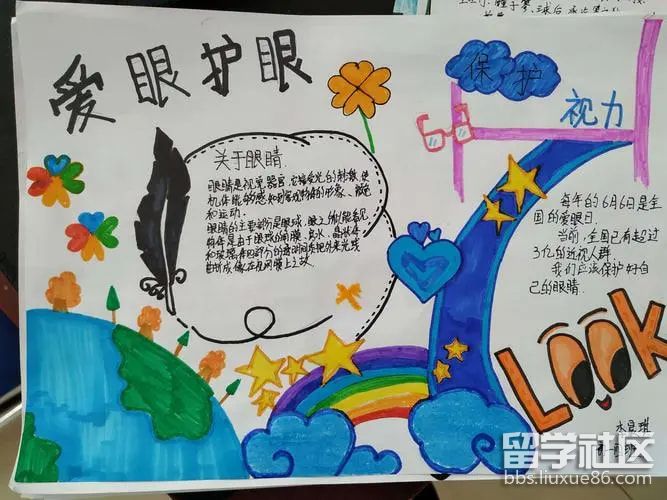 爱眼护眼
保护
视力
关于眼睛
眼睛是视觉器官,它接受光的刺激,使
机体能够感知到客观物体的形象、颜色
和运动。
眼睛的主要部分是眼球,眼之所以能看见
物体是由于眼球的角膜、房水、晶状体
和玻璃体
成像在视网膜上之故。
每年的6月6日是全
国的爱眼日。
当前,全国已有超过
3亿的近视人群
我们应该保护好自
己的眼睛.
LOOK
留学社区
bbs.liuxue86.com